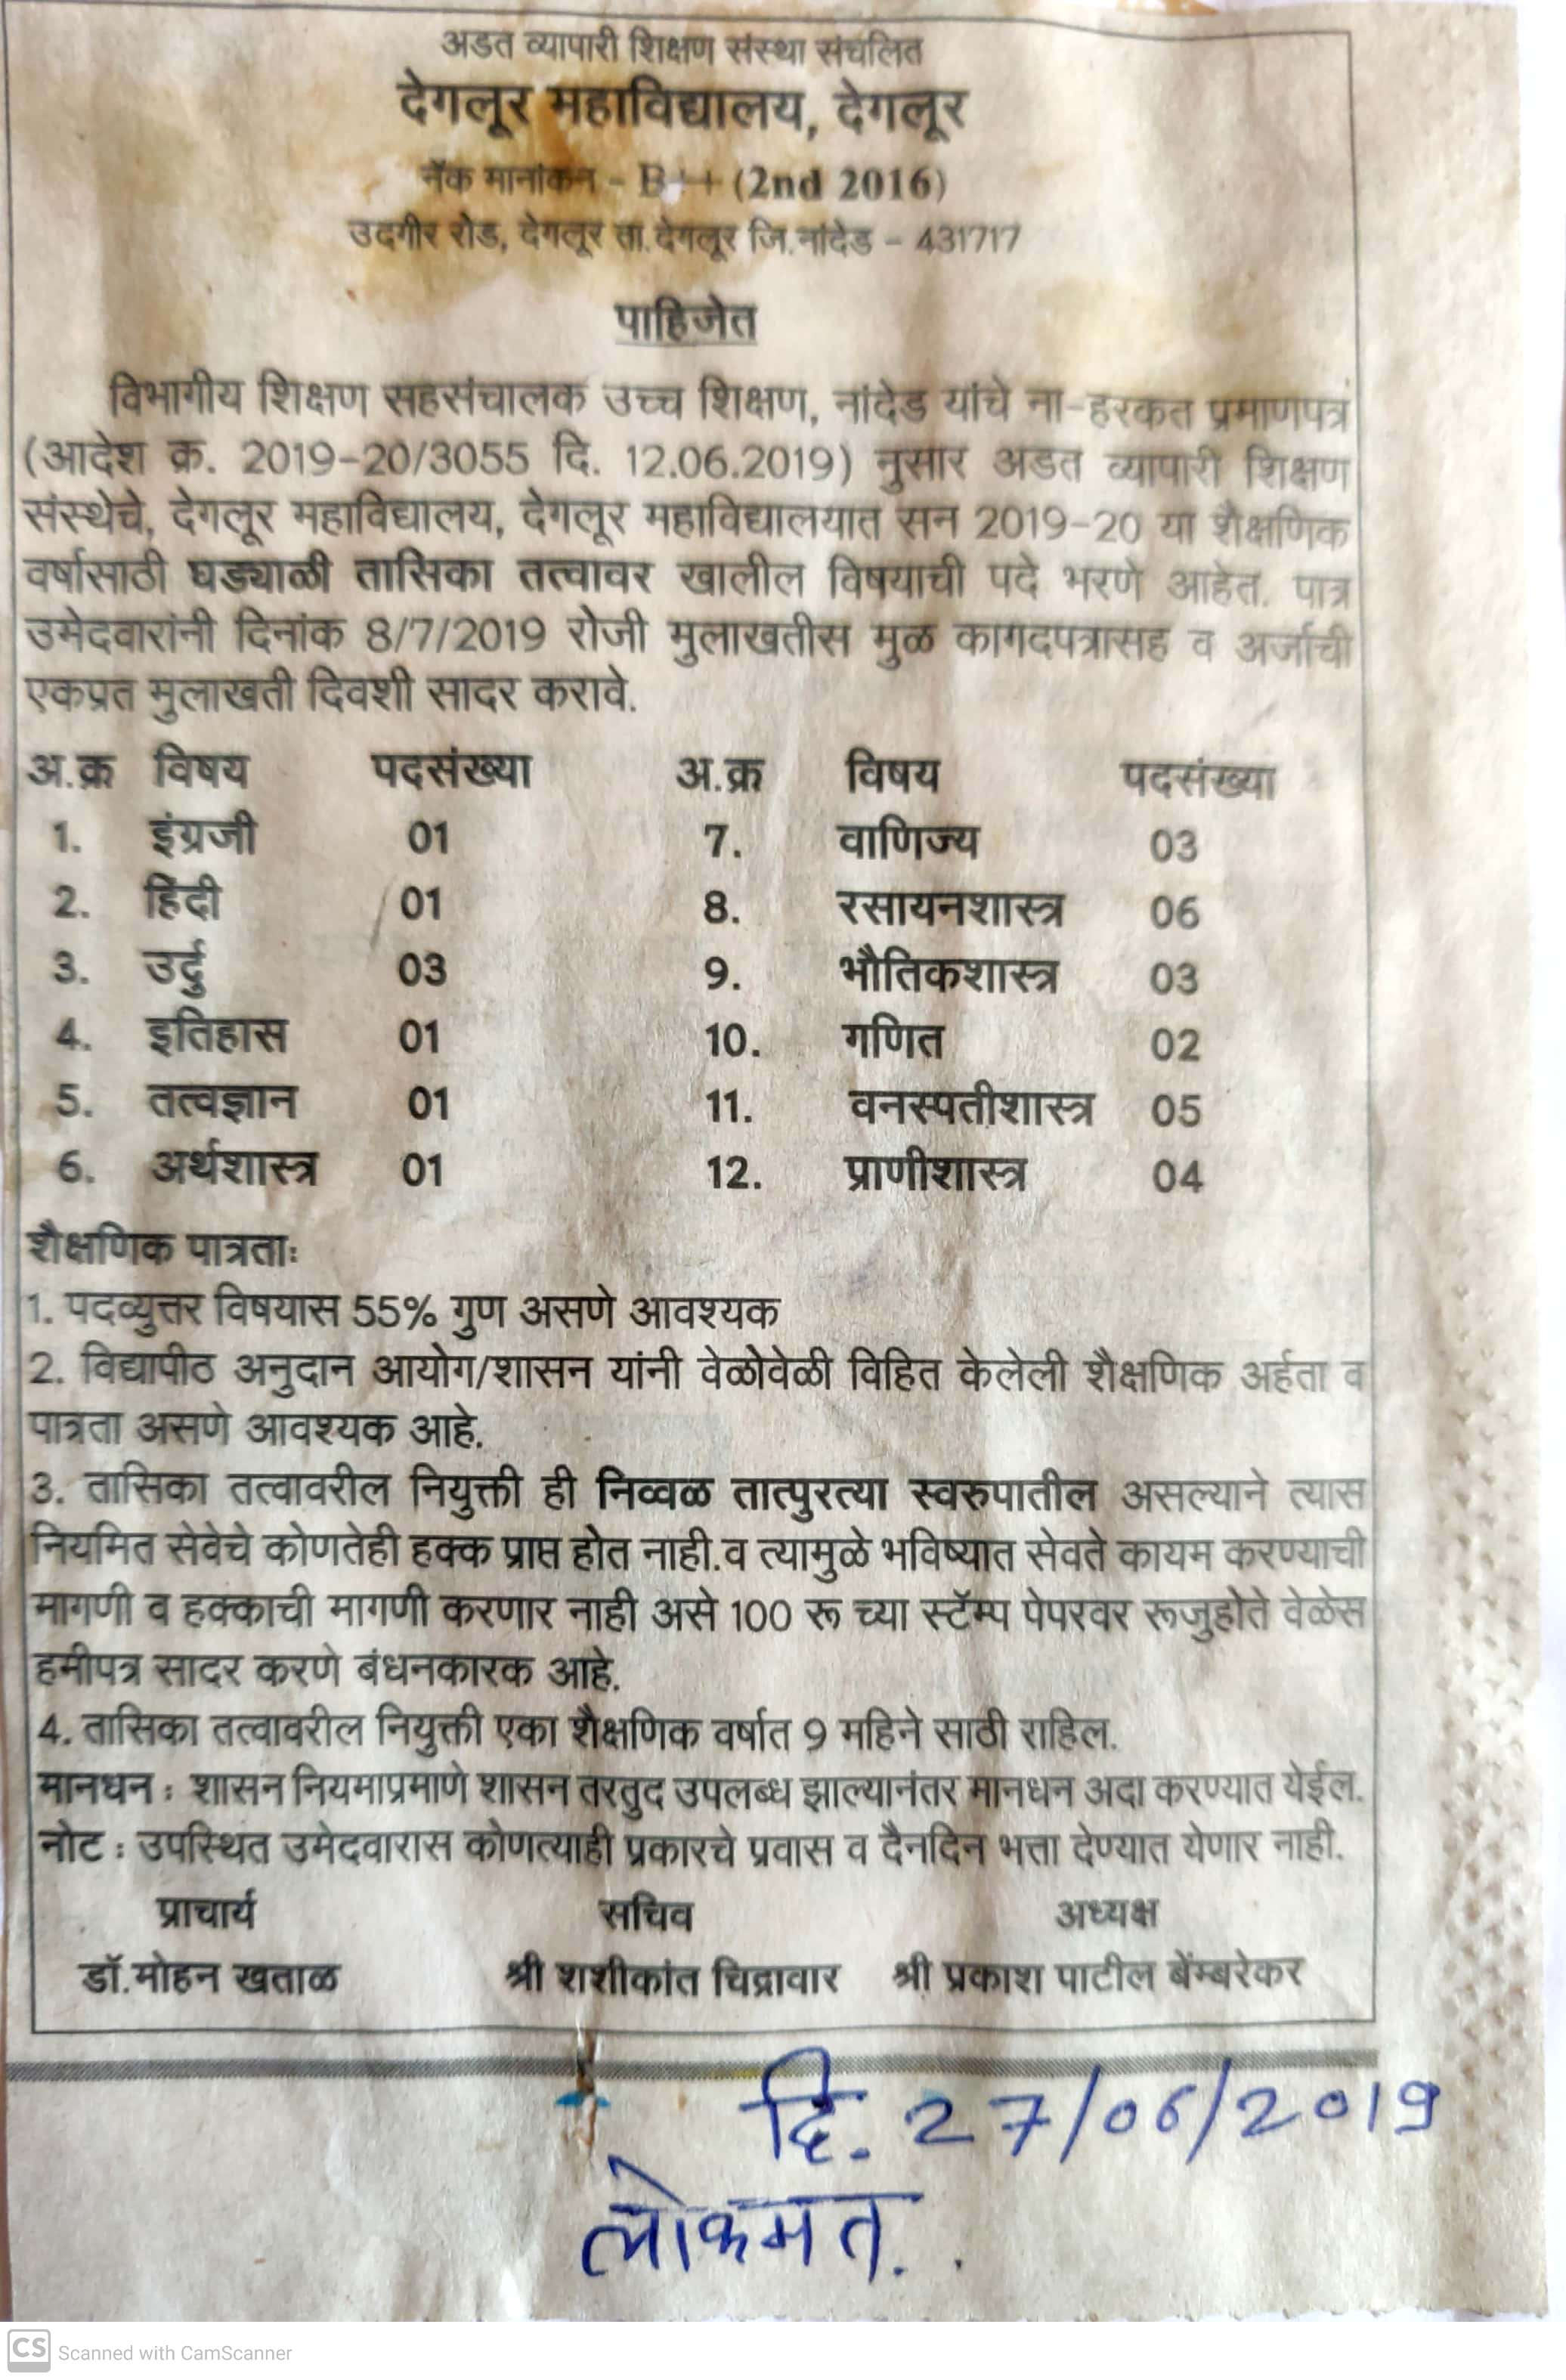 अडत व्यापारी शिक्षण संस्था संचलित
देगलूर महाविद्यालय, देगलूर
नॅक मानांकन - B++ (2nd 2016)
उदगीर रोड, देगलूर ता.देगलूर जि.नांदेड - 431717
पाहिजेत
विभागीय शिक्षण सहसंचालक उच्च शिक्षण, नांदेड यांचे ना-हरकत प्रमाणपत्र
(आदेश क्र. 2019-20/3055 दि. 12.06.2019) नुसार अडत व्यापारी शिक्षण
संस्थेचे, देगलूर महाविद्यालय, देगलूर महाविद्यालयात सन 2019-20 या शैक्षणिक
वर्षासाठी घड्याळी तासिका तत्वावर खालील विषयाची पदे भरणे आहेत. पात्र
उमेदवारांनी दिनांक 8/7/2019 रोजी मुलाखतीस मुळ कागदपत्रासह व अर्जाची
एकप्रत मुलाखती दिवशी सादर करावे.
अ.क्र विषय पदसंख्या अ.क्र विषय पदसंख्या
1. इंग्रजी 01 7. वाणिज्य 03
2. हिंदी 01 8. रसायनशास्त्र 06
3. उर्दु 03 9. भौतिकशास्त्र 03
4. इतिहास 01 10. गणित 02
5. तत्वज्ञान 01 11. वनस्पतीशास्त्र 05
6. अर्थशास्त्र 01 12. प्राणीशास्त्र 04
शैक्षणिक पात्रताः
1. पदव्युत्तर विषयास 55% गुण असणे आवश्यक
2. विद्यापीठ अनुदान आयोग/शासन यांनी वेळोवेळी विहित केलेली शैक्षणिक अर्हता व
पात्रता असणे आवश्यक आहे.
3. तासिका तत्वावरील नियुक्ती ही निव्वळ तात्पुरत्या स्वरुपातील असल्याने त्यास
नियमित सेवेचे कोणतेही हक्क प्राप्त होत नाही.व त्यामुळे भविष्यात सेवते कायम करण्याची
मागणी व हक्काची मागणी करणार नाही असे 100 रू च्या स्टॅम्प पेपरवर रूजुहोते वेळेस
हमीपत्र सादर करणे बंधनकारक आहे.
4. तासिका तत्वावरील नियुक्ती एका शैक्षणिक वर्षात 9 महिने साठी राहिल.
मानधन : शासन नियमाप्रमाणे शासन तरतुद उपलब्ध झाल्यानंतर मानधन अदा करण्यात येईल.
नोट : उपस्थित उमेदवारास कोणत्याही प्रकारचे प्रवास व दैनदिन भत्ता देण्यात येणार नाही.
प्राचार्य सचिव अध्यक्ष
डॉ.मोहन खताळ श्री शशीकांत चिद्रावार श्री प्रकाश पाटील बेंम्बरेकर
दि. 27/06/2019
लोकमत.
CS Scanned with CamScanner